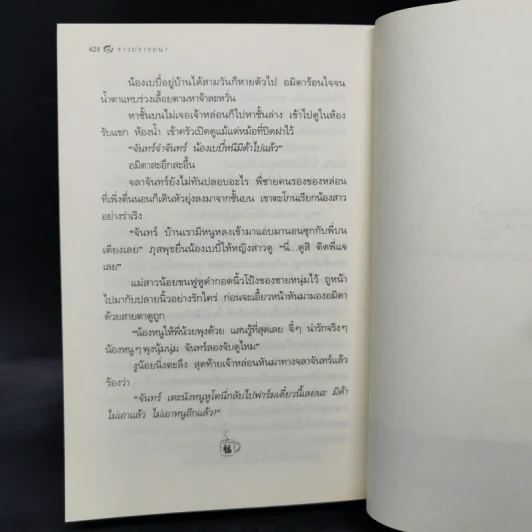 424 รางปรารถนา
น้องเบบี้อยู่บ้านได้สามวันก็หายตัวไป อมิตาร้อนใจจน
น้ำตาแทบร่วงเลื้อยตามหาจ้าละหวั่น
หาชั้นบนไม่เจอเจ้าหล่อนก็ไปหาชั้นล่าง เข้าไปดูในห้อง
รับแขก ห้องน้ำ เข้าครัวเปิดดูแม้แต่หม้อที่ปิดฝาไว้
“จันทร์จ๋าจันทร์ น้องเบบี้หนีมิต้าไปแล้ว”
อมิตาสะอึกสะอื้น
จลาจันทร์ยังไม่ทันปลอบอะไร พี่ชายคนรองของหล่อน
ที่เพิ่งตื่นนอนก็เดินหัวยุ่งลงมาจากชั้นบน เขาตะโกนเรียกน้องสาว
อย่างร่าเริง
“จันทร์ บ้านเรามีหนูหลงเข้ามาแอบมานอนซุกกับพี่บน
เตียงเลย” ภุสพุธยื่นน้องเบบี้ให้หญิงสาวดู “นี่...ดูสิ ติดพี่แจ
เลย”
แม่สาวน้อยขนฟูหูดำกอดนิ้วโป้งของชายหนุ่มไว้ ถูหน้า
ไปมากับปลายนิ้วอย่างรักใคร่ ก่อนจะเอี้ยวหน้าหันมามองอมิตา
ด้วยสายตาดูถูก
“น้องหนูให้พี่น้วยพุงด้วย แสนรู้ที่สุดเลย จึ๋ๆ น่ารักจริงๆ
น้องหนูๆ พุงนุ้มนุ่ม จันทร์ลองจับดูไหม”
งูน้อยนิ่งตะลึง สุดท้ายเจ้าหล่อนหันมาทางจลาจันทร์แล้ว
ร้องว่า
“จันทร์ เตะนังหนูหูโตนี่กลับไปฟาร์มเดี๋ยวนี้เลยนะ มิต้า
ไม่เอาแล้ว ไม่เอาหนูอีกแล้ว!”
福